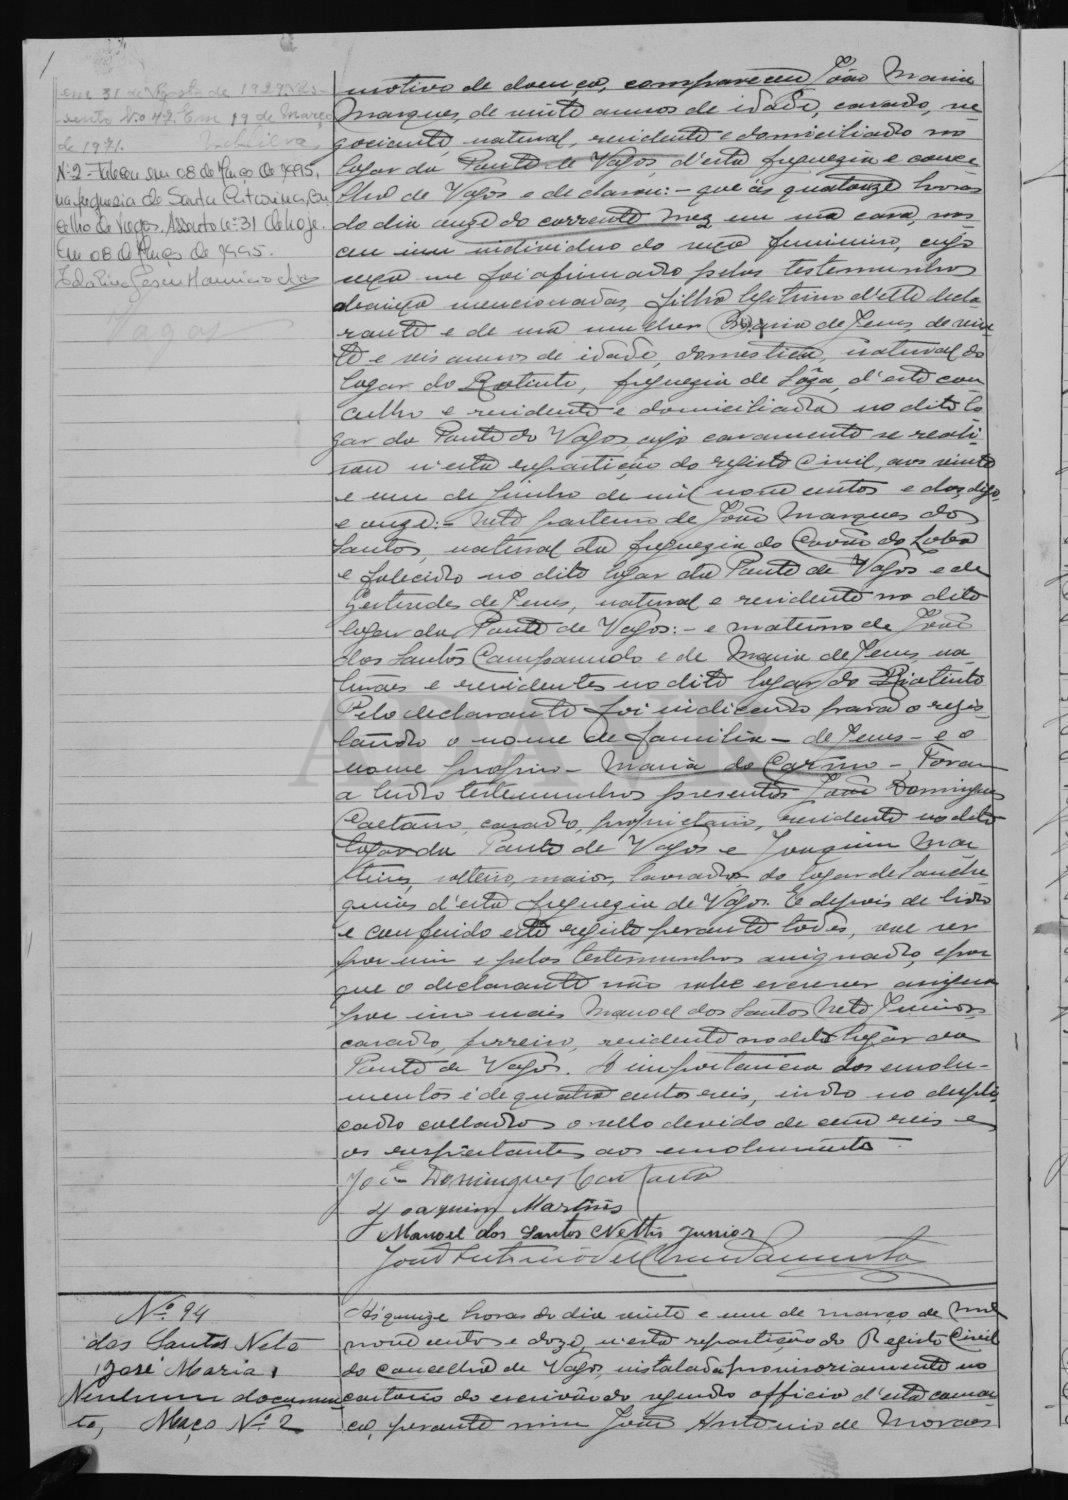 em 31 de Agosto de 1927. As-
sento No 42. Em 19 de Março
de 1971.
Nº 2 - Faleceu em 08 de Março de 1995,
na freguesia de Santa Catarina, Con
celho de Vagos. Assento nº 31 de hoje.
Em 08 de Março de 1995.
Vagos
motivo de doença, compareceu João Maria
Marques, de vinte annos de idade, casado, ne
gociante, natural, residente e domiciliado no
logar da Ponte de Vagos, d'esta freguezia e conce
lho de Vagos e declarou: - que ás quatorze horas
do dia onze do corrente mez em sua casa, nas
ceu um individuo do sexo feminino, cujo
sexo me foi afirmado pelas testemunhas
abaixo mencionadas, filho legitimo d'elle decla
rante e de sua mulher Maria de Jesus de vin
te e seis annos de idade, domestica, natural do
logar do Rotinto, freguezia de Sóza, d'este con
celho e residente e domiciliada no dito lo
gar da Ponte de Vagos cujo casamento se reali
sou n'esta repartição do registo civil, aos vinte
e um de Junho de mil nove centos e doz, digo
e onze: - Neto paterno de João Marques dos
Santos, natural da freguezia do Covão do Lobo
e falecido no dito logar da Ponte de Vagos e de
Gertrudes de Jesus, natural e residente no dito
logar da Ponte de Vagos: - e materno de João
dos Santos Campanudo e de Maria de Jesus, na
turaes e residentes no dito logar do Riotinto
Pelo declarante foi indicado para o regis-
tando o nome de familia - de Jesus - e o
nome proprio - Maria do Carmo - Foram
a tudo testemunhas presentes João Domingues
Caetano, casado, proprietario, residente no dito
logar da Ponte de Vagos e Joaquim Mar
tins, solteiro, maior, lavrador do logar de Sanchi
quias d'esta freguezia de Vagos. E depois de lido
e conferido este registo perante todos, vae ser
por mim e pelas testemunhas assignado, e por
que o declarante não sabe escrever assigna
por imo mais Manoel dos Santos Neto Junior,
casado, ferreiro, residente no dito logar da
Ponte de Vagos. A importancia dos emolu-
mentos é de quatro centos reis, indo no dupli
cado collados o sello devido de cem reis e
os respeitantes aos emolumentos
João Domingues Caetano
Joaquim Martins
Manoel dos Santos Netto Junior
João Antonio de Moraes Sarmento
Nº 94
dos Santos Neto
José Maria
Nenhum documen
to, Maço Nº 2
Ás quinze horas do dia vinte e um de março de mil
nove centos e doze, n'esta repartição do Registo Civil
do concelho de Vagos, installada provisoriamente no
cartorio do escrivão do segundo officio d'esta comar
ca, perante mim João Antonio de Moraes